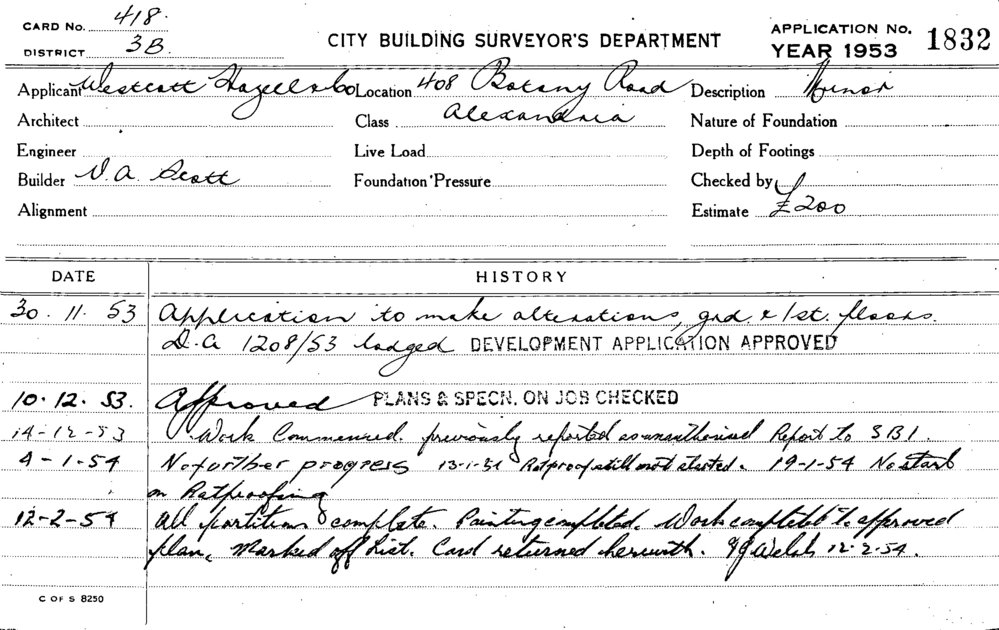 CARD No. 418.
DISTRICT 3B.
CITY BUILDING SURVEYOR'S DEPARTMENT
APPLICATION No.
YEAR 1953
1832
Applicant Westcott Hazell & Co Location 408 Botany Road Description Minor
Architect Class Alexandria Nature of Foundation
Engineer Live Load Depth of Footings
Builder V.A. Scott Foundation Pressure Checked by
Alignment Estimate £200
DATE HISTORY
30. 11. 53 Application to make alterations, grd. & 1st. floors.
D.A 1208/53 lodged DEVELOPMENT APPLICATION APPROVED
10. 12. 53. Approved PLANS & SPECN. ON JOB CHECKED
14-12-53 Work Commenced. previously reported as unauthorised Report to SBI.
4-1-54 No further progress 13-1-54 Ratproof still not started. 19-1-54 No start
on Ratproofing
12-2-54 All partitions complete. Painting completed. Work completed to approved
plan. Marked off List. Card returned herewith. Welsh 12-2-54.
C OF S 8250